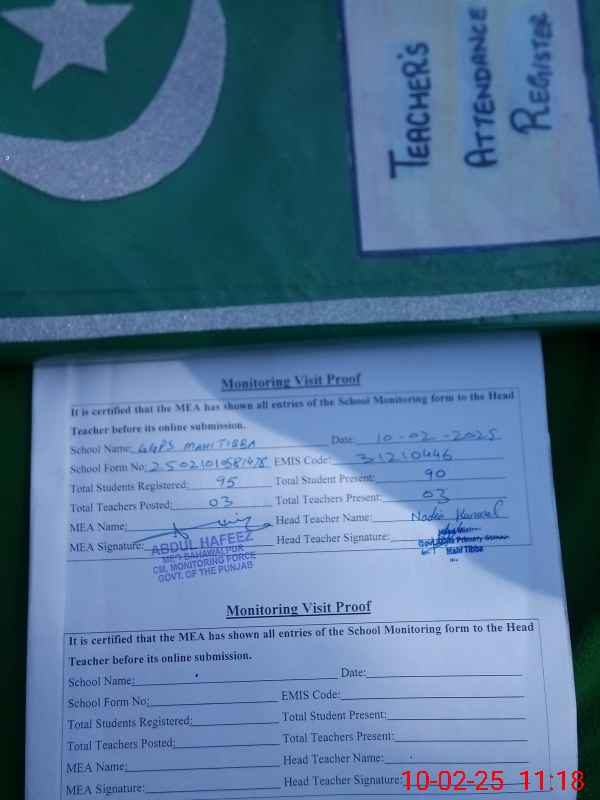 TEACHER'S
ATTENDANCE
REGISTER
Monitoring Visit Proof
It is certified that the MEA has shown all entries of the School Monitoring form to the Head
Teacher before its online submission.
School Name: GGPS MAHI TIBBA Date: 10-02-2025
School Form No: EMIS Code: 31210446
Total Students Registered: 95 Total Student Present: 90
Total Teachers Posted: 03 Total Teachers Present: 03
MEA Name: Head Teacher Name: Nadia Kanwal
MEA Signature: Head Teacher Signature:
ABDUL HAFEEZ
MEA BAHAWALPUR
CM, MONITORING FORCE
GOVT. OF THE PUNJAB
Primary
Mahi Tibba
Monitoring Visit Proof
It is certified that the MEA has shown all entries of the School Monitoring form to the Head
Teacher before its online submission.
School Name: Date:
School Form No: EMIS Code:
Total Students Registered: Total Student Present:
Total Teachers Posted: Total Teachers Present:
MEA Name: Head Teacher Name:
MEA Signature: Head Teacher Signature:
10-02-25 11:18